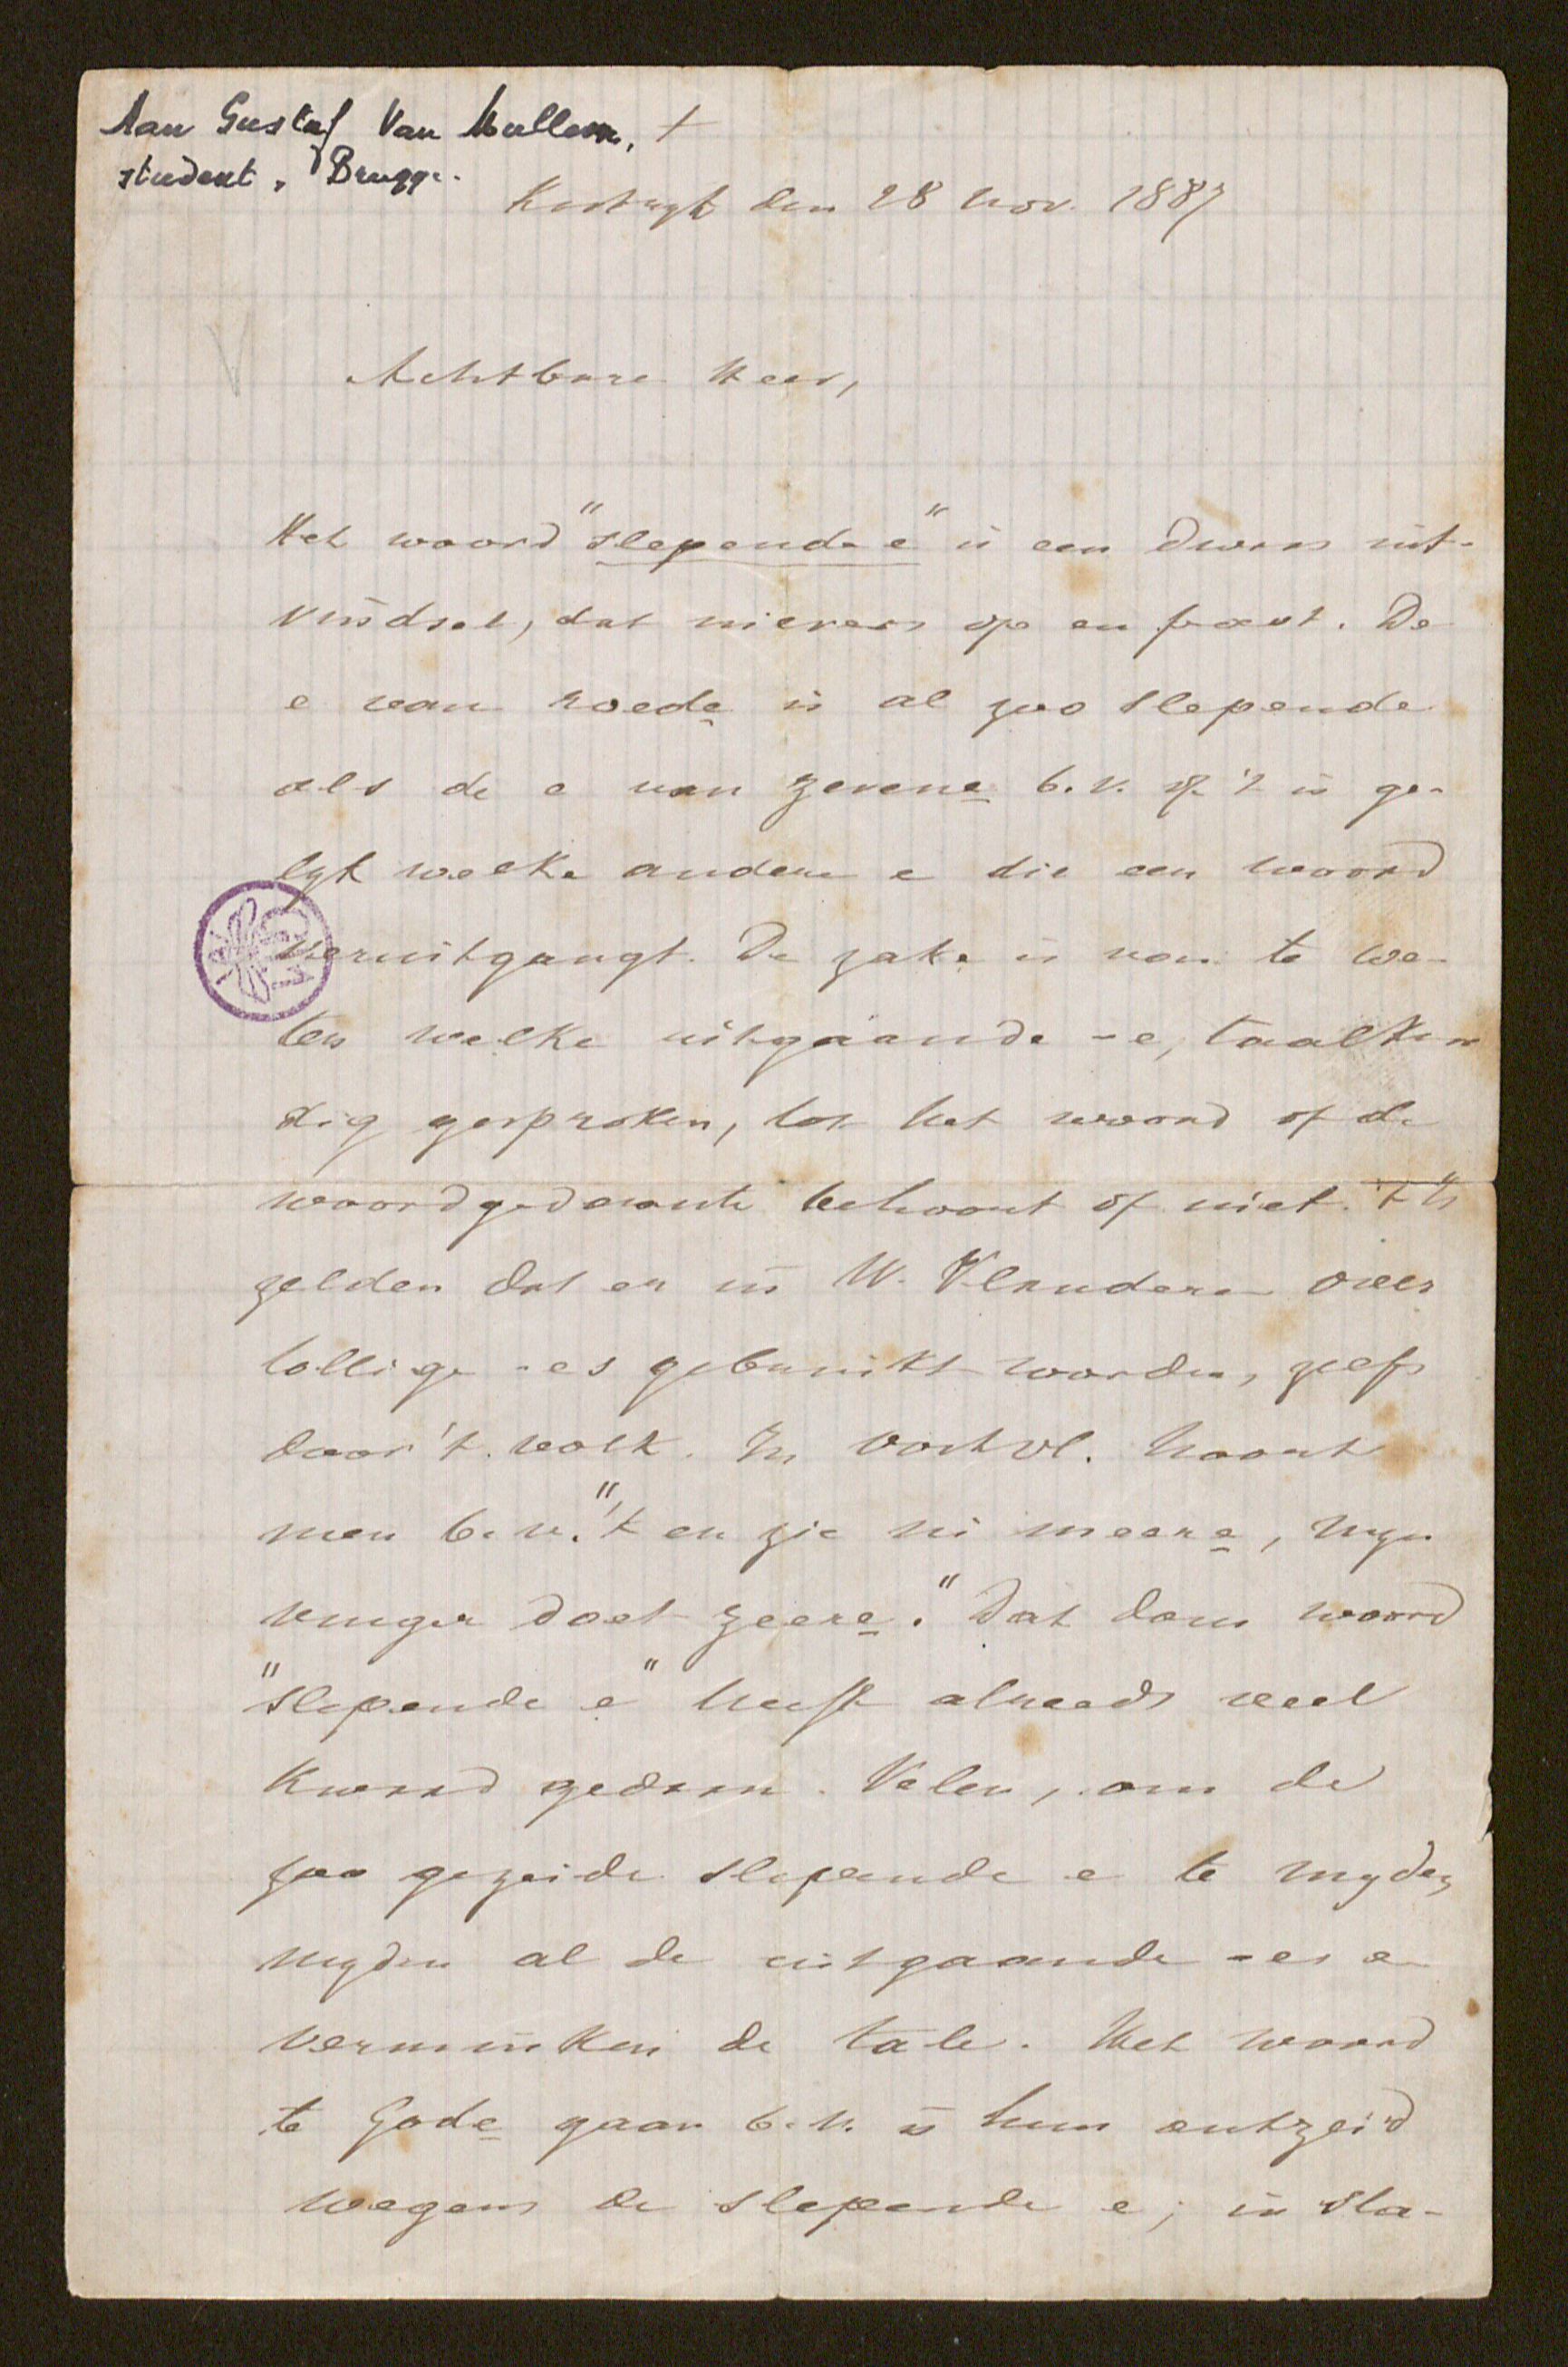 Aan Gustaf Van Mullem, +
student, Brugge.
Kortryk den 28 Nov. 1887
Achtbare Heer,
Het woord "slepende e" is een dwaas uit-
vindsel, dat nievers op en past. De
e van roede is al zoo slepende
als de e van zevene b.v. of 't is ge-
lyk welke andere e die een woord
veruitgangt. De zake is van te we-
ten welke uitgaande -e, taalkun
dig gesproken, tot het woord of de
woordgedaante behoort of niet. 't Is
zelden dat er in W. Vlanderen over
tollige -es gebruikt worden, zelfs
door 't volk. In Oostvl. hoort
men b.v. "'t en zie ni meere, myn
vinger doet zeere." Dat dom woord
"slepende e" heeft alreeds veel
kwaad gedaan. Velen, om de
zoo gezeide slepende e te myden,
myden al de uitgaande -es en
verminken de tale. Het woord
te Gode gaan b.v. is hun ontzeid
wegens de slepende e; in sta-